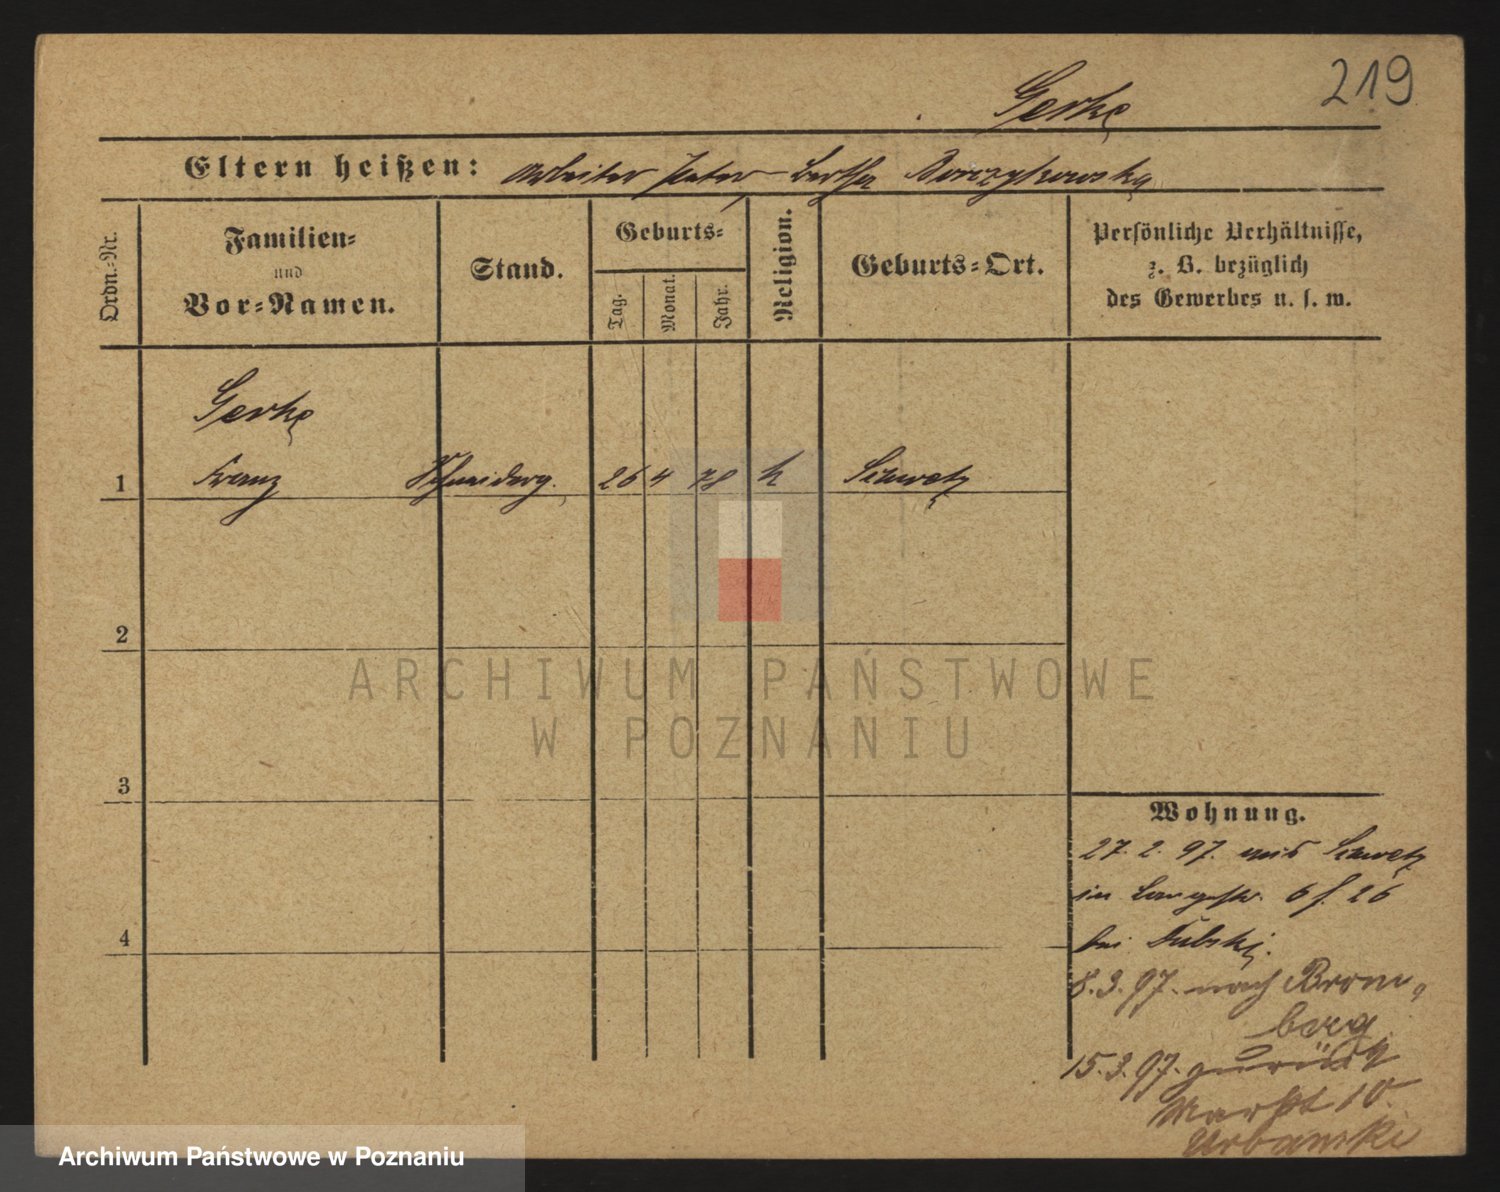 219
Gerke
Eltern heißen: Arbeiter Peter - Bertha
Ordn.-Nr.
Familien-
und
Vor-Namen.
Stand.
Geburts-
Tag.
Monat.
Jahr.
Religion.
Geburts-Ort.
Persönliche Verhältnisse,
z. B. bezüglich
des Gewerbes u. s. w.
Gerke
1 Franz Schneiderg. 26 4 78 k Schwetz
2
ARCHIWUM PAŃSTWOWE
W POZNANIU
3
Wohnung.
27. 2. 97. aus Schwetz
in Langestr. 6 f. 26
bei
4
8. 3. 97. nach Brom-
berg
15. 3. 97. zurück
Markt 10.
Urbanski
Archiwum Państwowe w Poznaniu